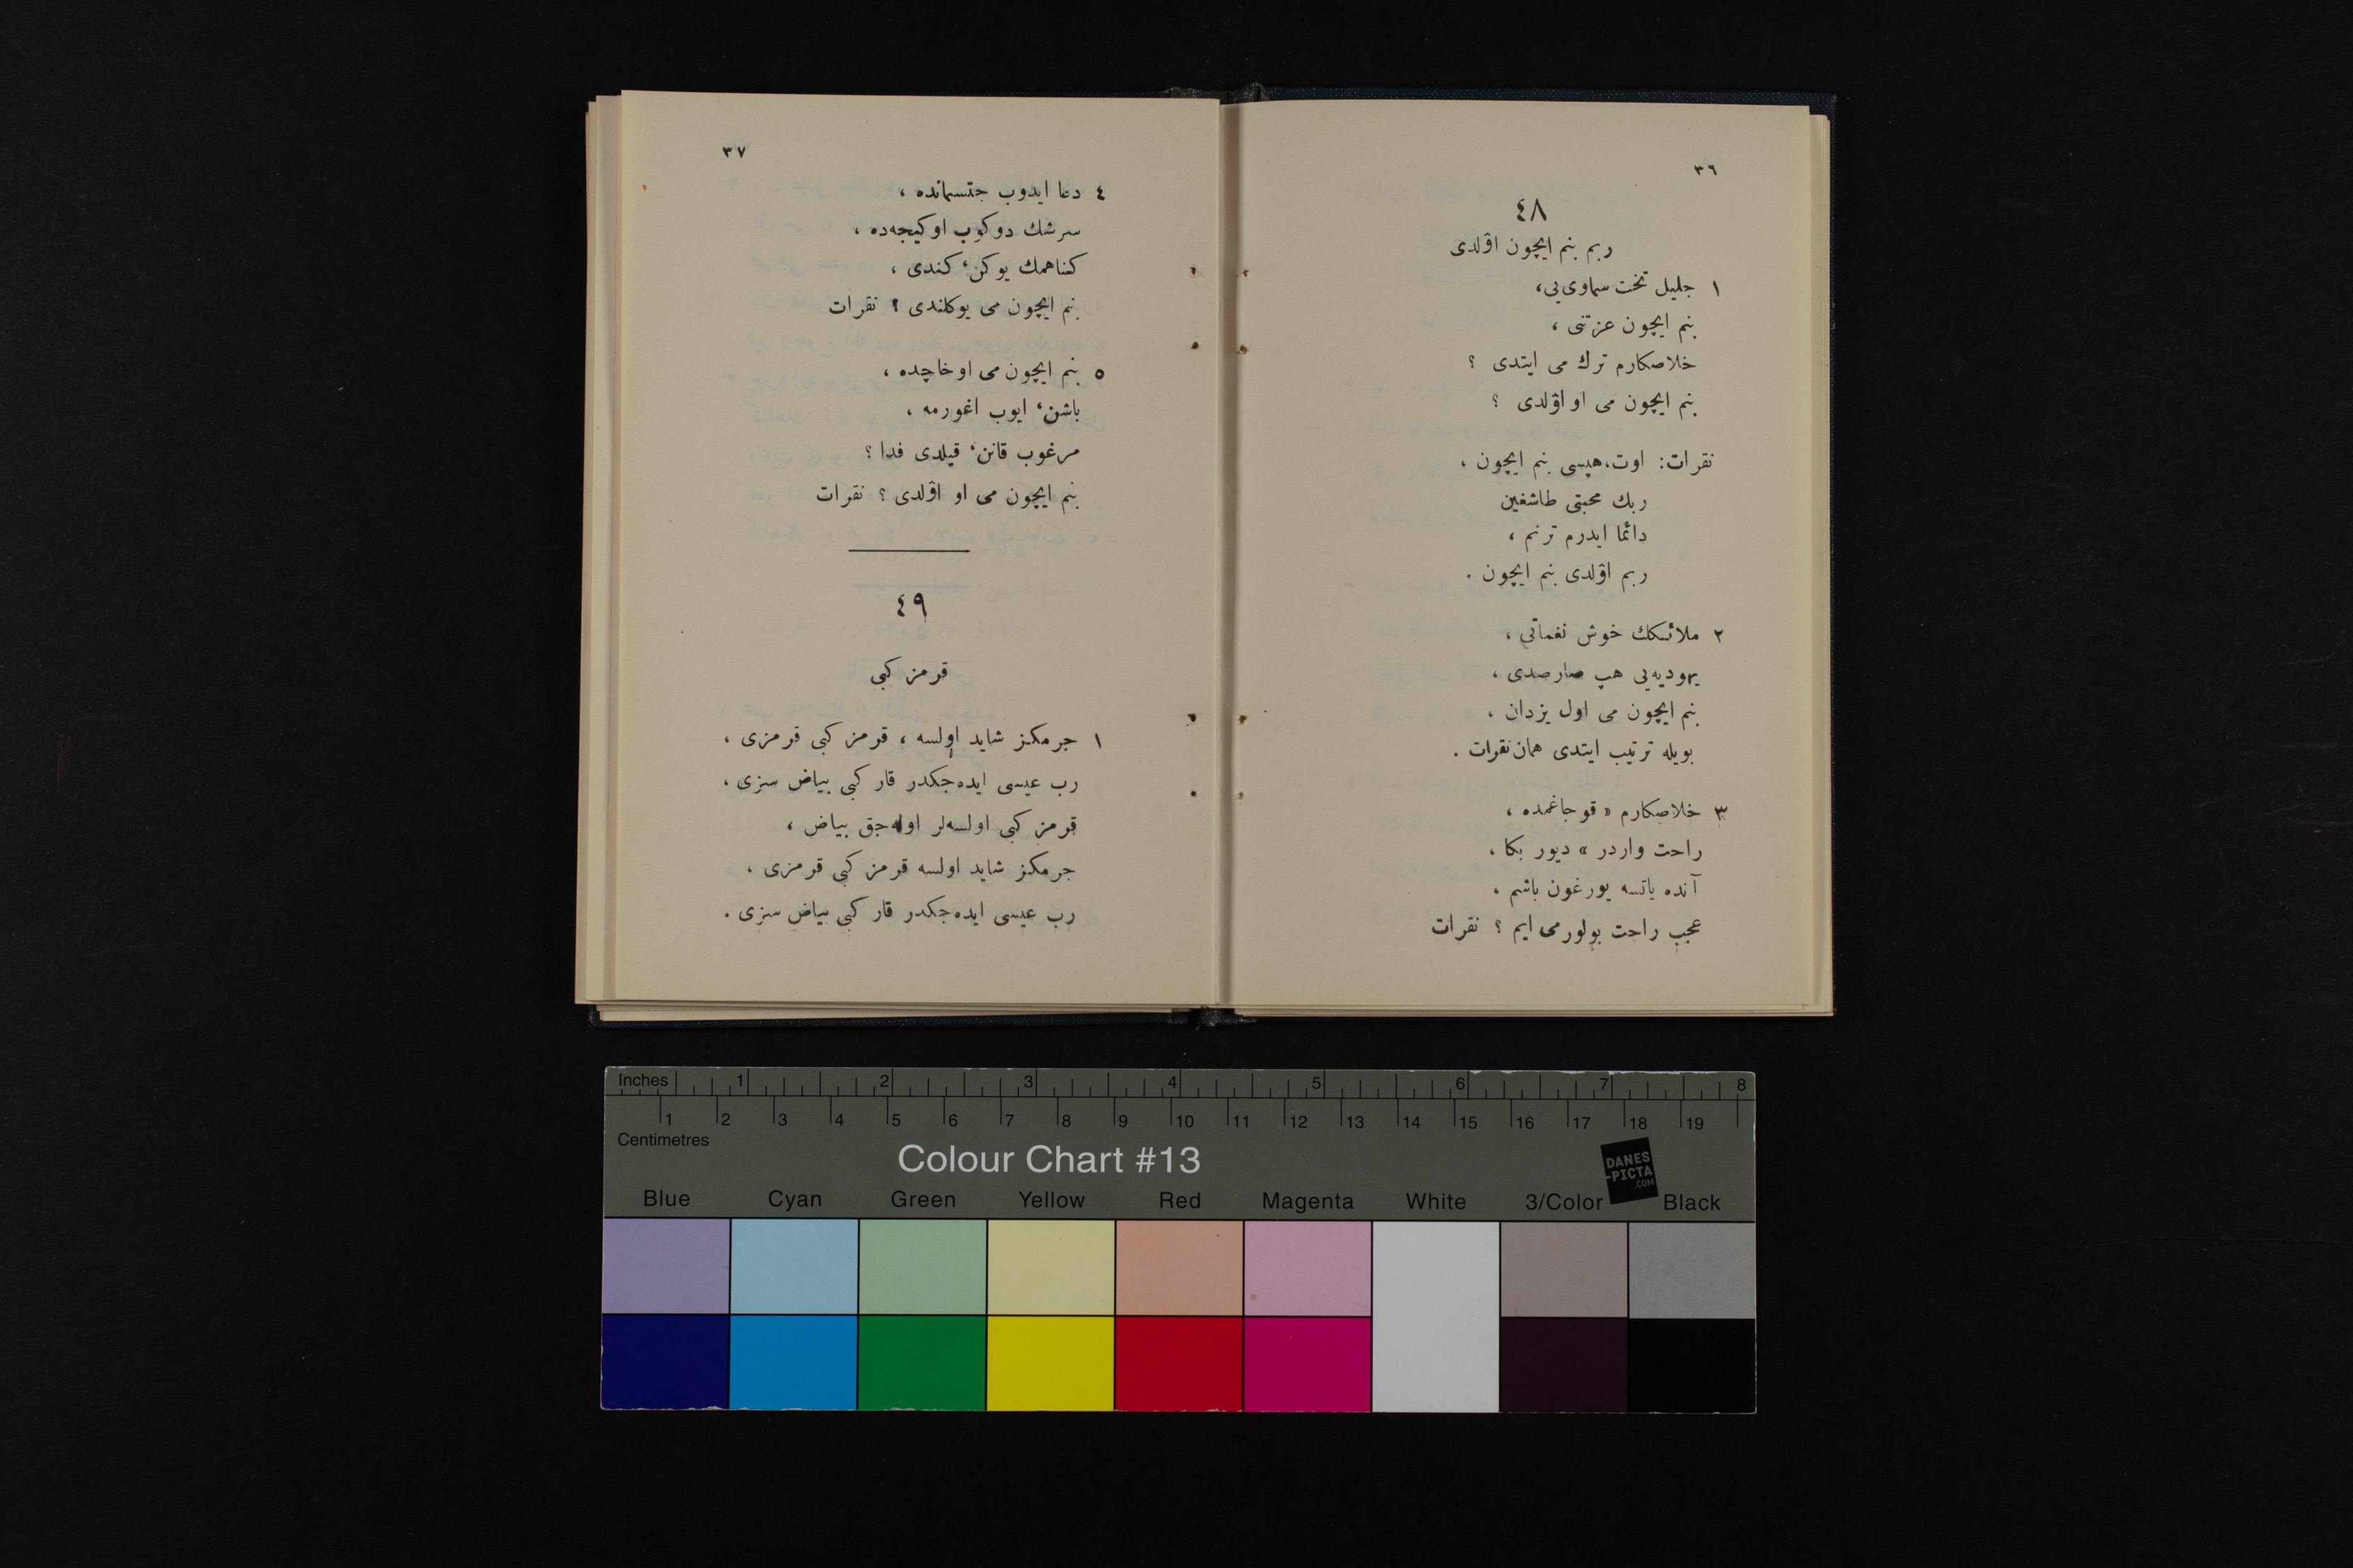 ٣٦
٤٨
ربم بنم ايچون اۆلدى
١ جليل تخت سماوى‌يى،
بنم ايچون عزتنى ،
خلاصكارم ترك مى ايتدى ؟
بنم ايچون مى او اۆلدى ؟
نقرات: اوت،هپسى بنم ايچون ،
ربك محبتى طاشغين
دائما ايدرم ترنم ،
ربم اۆلدى بنم ايچون .
٢ ملائكك خوش نغماتى ،
يهوديه‌يى هپ صارصدى ،
بنم ايچون مى اول يزدان ،
بويله ترتيب ايتدى همان نقرات .
٣ خلاصكارم « قوجاغمده ،
راحت واردر » ديور بكا ،
آنده ياتسه يورغون باشم ،
عجب راحت بولورمى ايم ؟ نقرات
٣٧
٤ دعا ايدوب جتسمانده ،
سرشك دوكوب اوكيجه‌ده ،
كناهمك يوكن، كندى ،
بنم ايچون مى يوكلندى ؟ نقرات
٥ بنم ايچون مى اوخاچده ،
باشن، ايوب اغورمه ،
مرغوب قانن، قيلدى فدا ؟
بنم ايچون مى او اۆلدى ؟ نقرات
٤٩
قرمز كبى
١ جرمكز شايد اولسه ، قرمز كبى قرمزى ،
رب عيسى ايده‌جكدر قار كبى بياض سزى ،
قرمز كبى اولسه‌لر اوله‌جق بياض ،
جرمكز شايد اولسه قرمز كبى قرمزى ،
رب عيسى ايده‌جكدر قار كبى بياض سزى .
Inches 1 2 3 4 5 6 7 8
1 2 3 4 5 6 7 8 9 10 11 12 13 14 15 16 17 18 19
Centimetres
Colour Chart #13
DANES
-PICTA
.COM
Blue Cyan Green Yellow Red Magenta White 3/Color Black